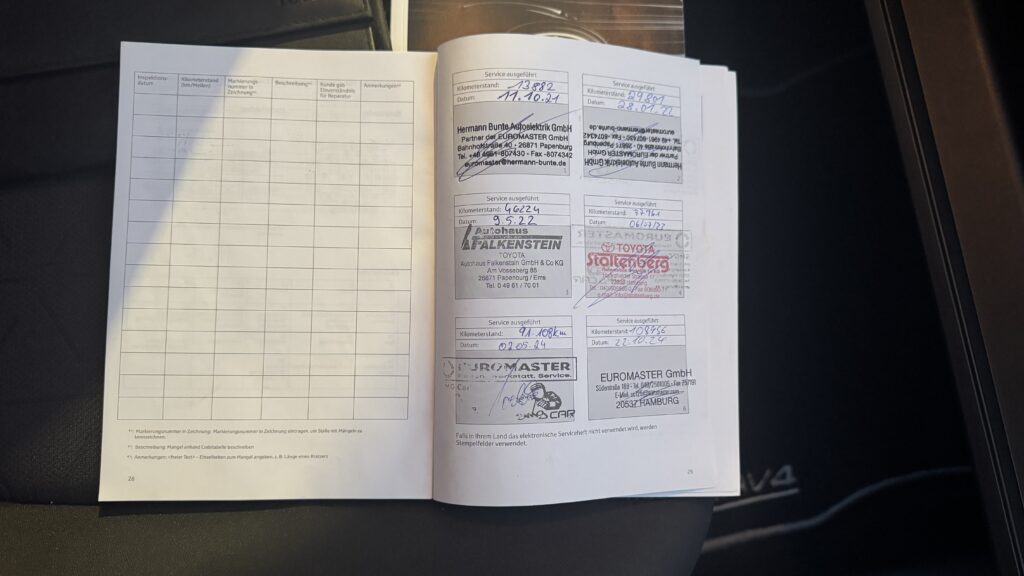 Inspektions-
datum
Kilometerstand
(km/Meilen)
Markierungs-
nummer in
Zeichnung*¹
Beschreibung*²
Kunde gab
Einverständnis
für Reparatur
Anmerkungen*³
*¹: Markierungsnummer in Zeichnung: Markierungsnummer in Zeichnung eintragen, um Stelle mit Mängeln zu
kennzeichnen.
*²: Beschreibung: Mangel anhand Codetabelle beschreiben
*³: Anmerkungen: <freier Text> – Einzelheiten zum Mangel angeben, z. B. Länge eines Kratzers
26
Service ausgeführt
Kilometerstand: 13882
Datum: 11.10.21
Hermann Bunte Autoelektrik GmbH
Partner der EUROMASTER GmbH
Bahnhofstraße 40 - 26871 Papenburg
Tel. +49 4961-807430 - Fax -8074342
euromaster@hermann-bunte.de
1
Service ausgeführt
Kilometerstand: 29801
Datum: 28.01.22
Hermann Bunte Autoelektrik GmbH
Partner der EUROMASTER GmbH
Bahnhofstraße 40 - 26871 Papenburg
Tel. +49 4961-807430 - Fax -8074342
euromaster@hermann-bunte.de
2
Service ausgeführt
Kilometerstand: 46224
Datum: 9.5.22
Autohaus
FALKENSTEIN
TOYOTA
Autohaus Falkenstein GmbH & Co KG
Am Vosseberg 85
26871 Papenburg / Ems
Tel. 0 49 61 / 70 01
3
Service ausgeführt
Kilometerstand:
Datum:
TOYOTA
Stoltenberg
4
Service ausgeführt
Kilometerstand: 91.108km
Datum: 02.05.24
EUROMASTER
Service.
CAR
Service ausgeführt
Kilometerstand: 108756
Datum: 22.10.24
EUROMASTER GmbH
20537 HAMBURG
6
Falls in Ihrem Land das elektronische Serviceheft nicht verwendet wird, werden
Stempelfelder verwendet.
25
AV4